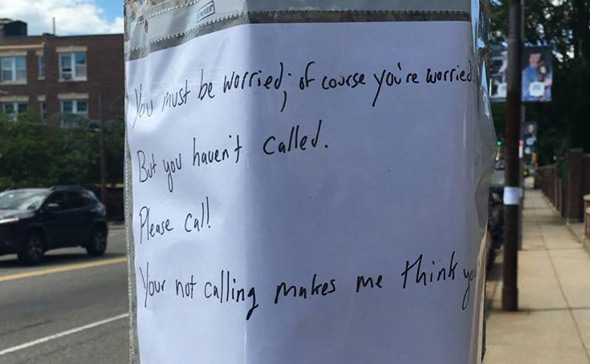 You must be worried; of course you're worried
But you haven't called.
Please call
Your not calling makes me think